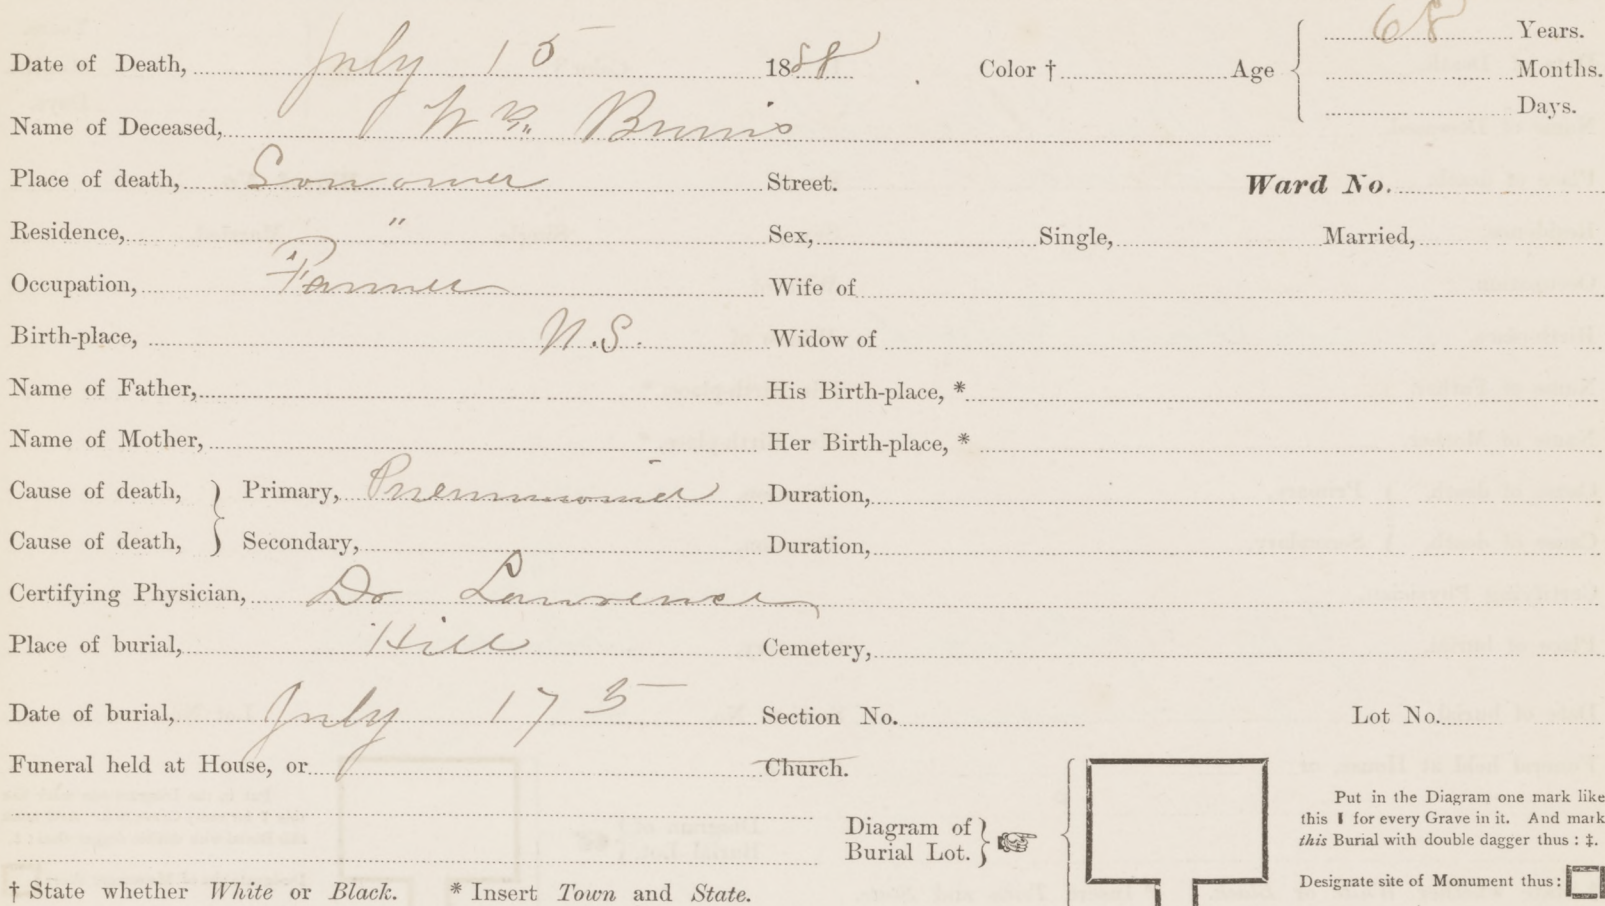 Date of Death, July 15 1888 Color † Age 68 Years.
Months.
Days.
Name of Deceased, Wm
Place of death, Street. Ward No.
Residence, " Sex, Single, Married,
Occupation, Farmer Wife of
Birth-place, N.S. Widow of
Name of Father, His Birth-place, *
Name of Mother, Her Birth-place, *
Cause of death, } Primary, Pneumonia Duration,
Cause of death, } Secondary, Duration,
Certifying Physician, Dr Lawrence
Place of burial, Hill Cemetery,
Date of burial, July 17 Section No. Lot No.
Funeral held at House, or Church.
Diagram of
Burial Lot. } ☞
Put in the Diagram one mark like
this ❙ for every Grave in it. And mark
this Burial with double dagger thus: ‡.
Designate site of Monument thus:
† State whether White or Black. * Insert Town and State.